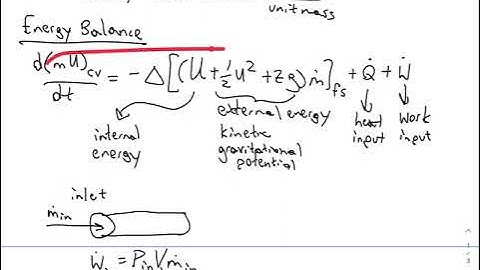 unit mass
Energy Balance
d(mU)cv/dt = -Δ[(U+½u²+zg)ṁ]fs + Q̇ + Ẇ
internal energy
external energy
kinetic
gravitational
potential
heat input
work input
inlet
ṁin
Ẇ = Pin V ṁin